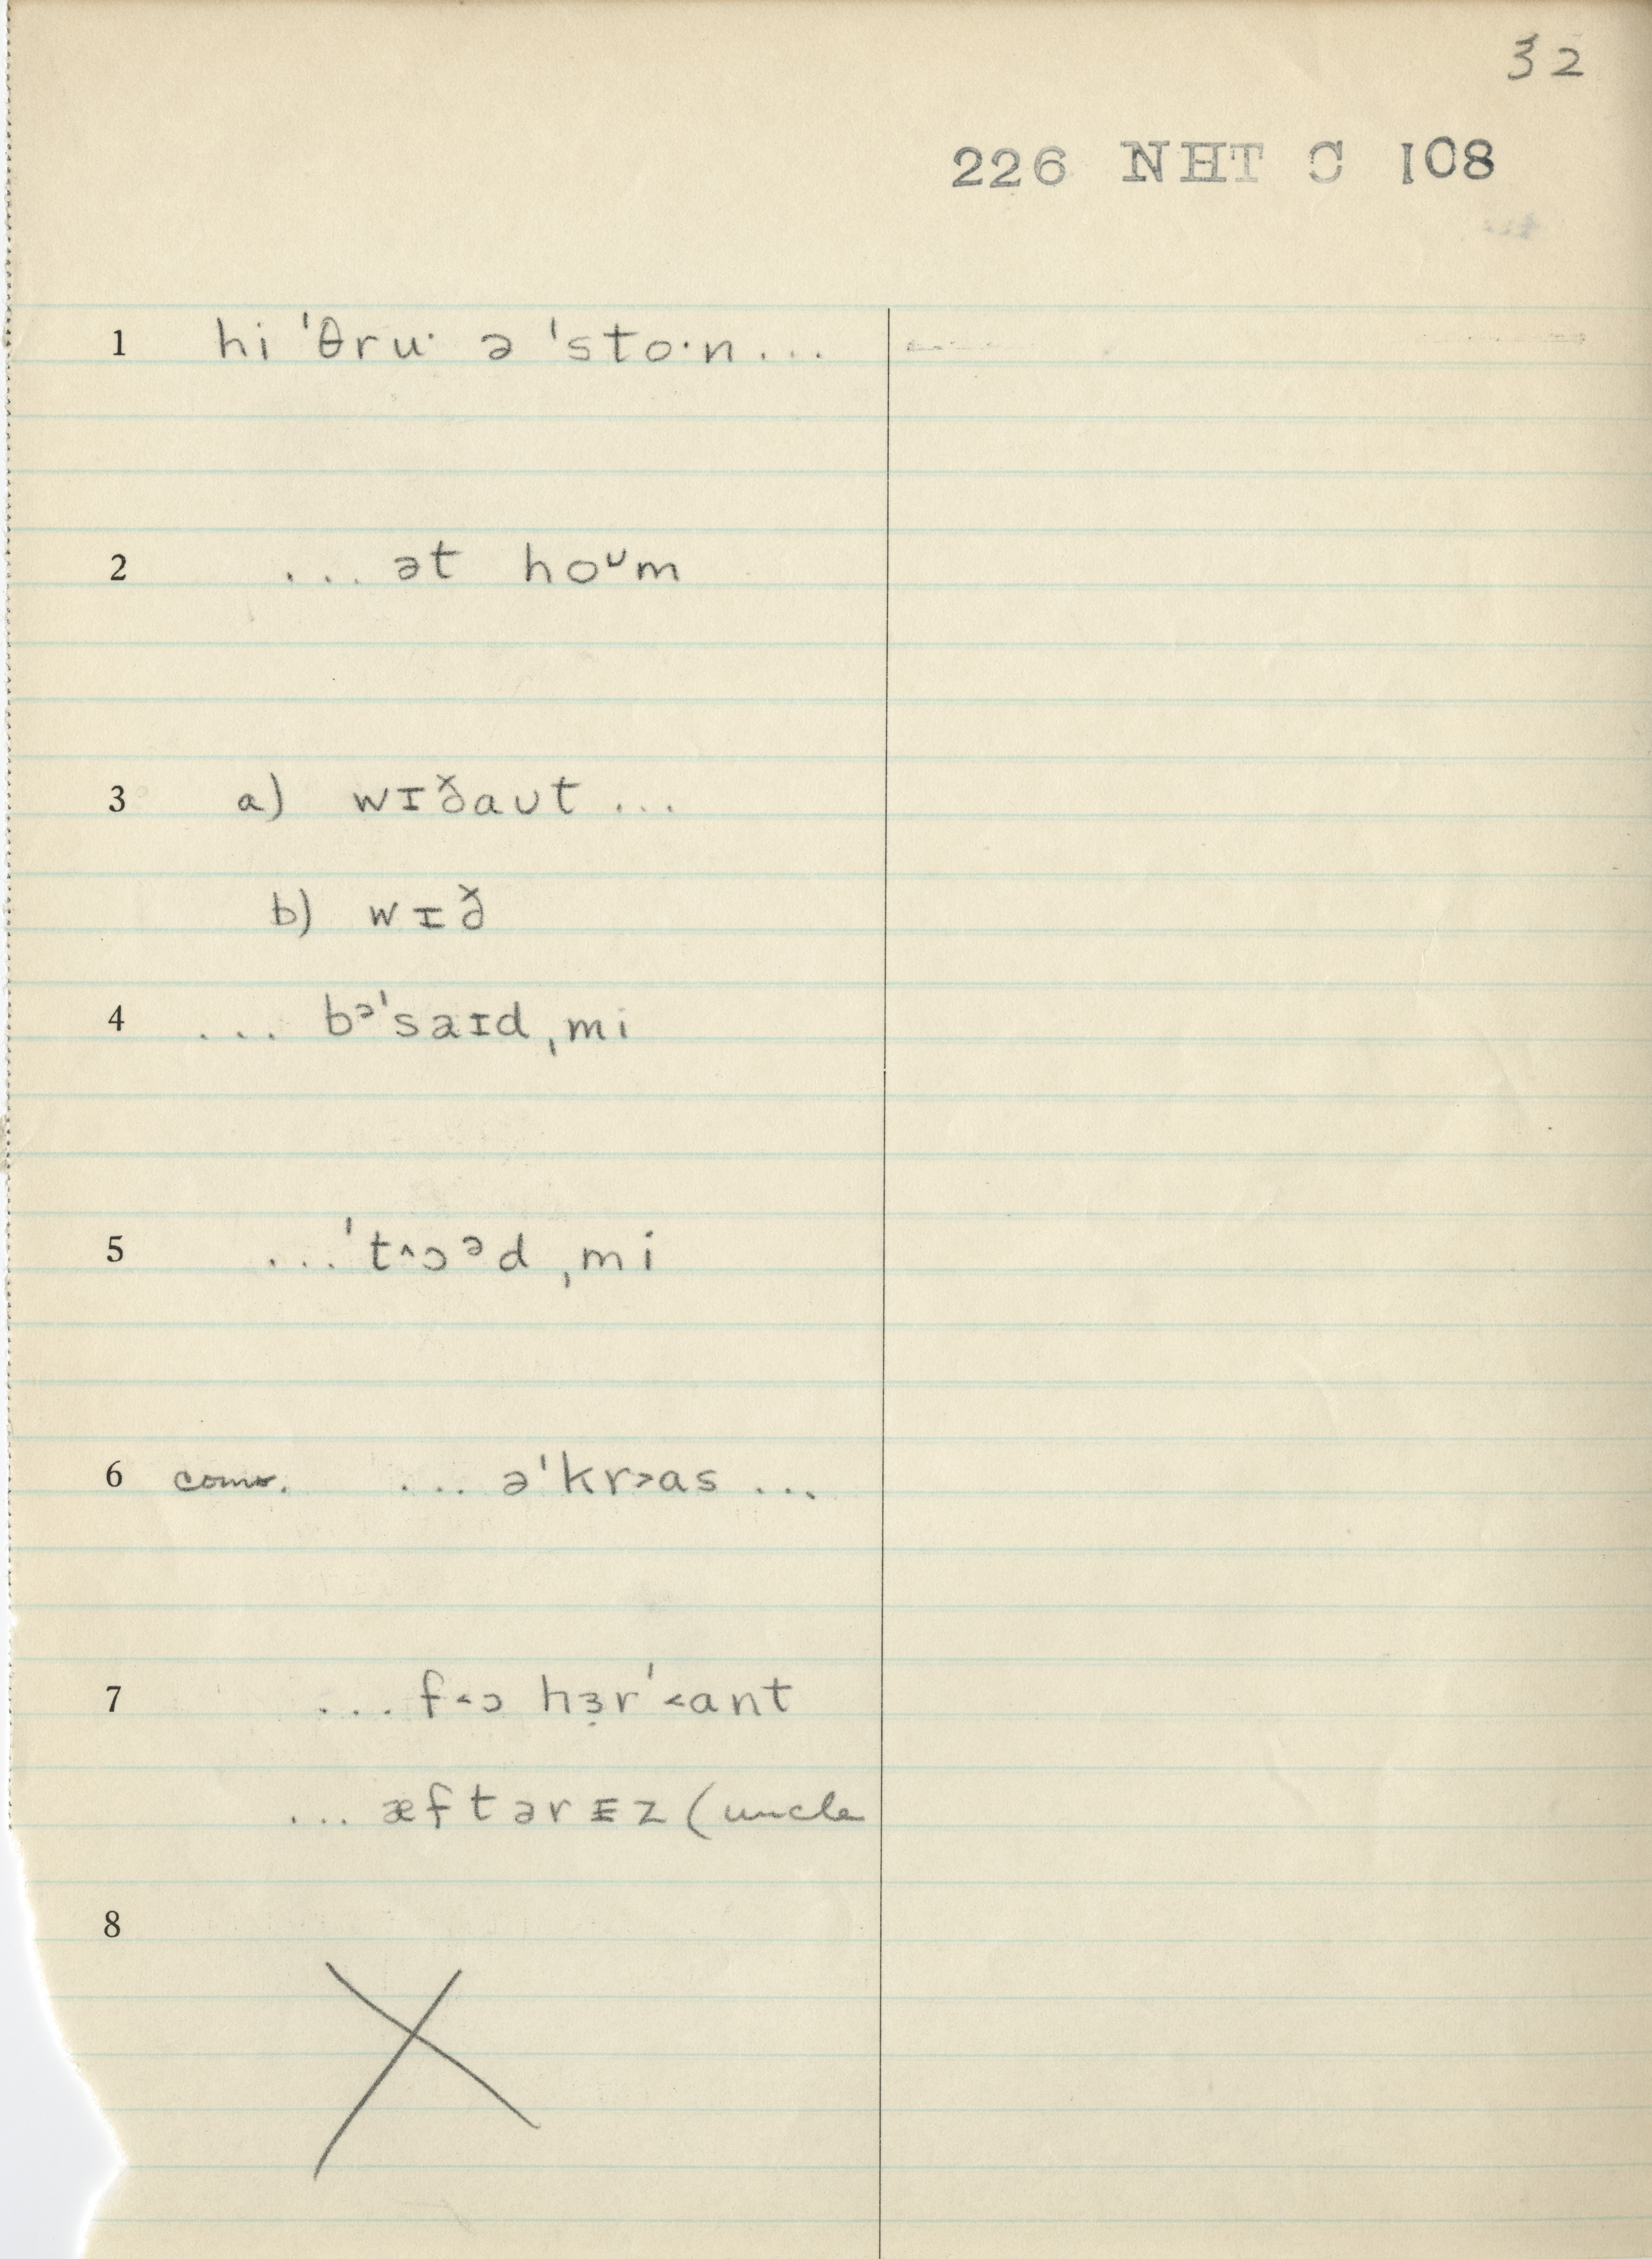 32
226 NHT C 108
1 hi ˈθruˑ ə ˈstoˑn...
2 ... ət hoᴜm
3 a) wɪðaᴜt ...
b) wɪð
4 ... bᵊˈsaɪd ˌmi
5 ...ˈt^ɔᵊd ˌmi
6 ... əˈkr>as ...
7 ... f<ɔ hɜ̣rˈ<ant
... æftərɪ̵z (uncle
8